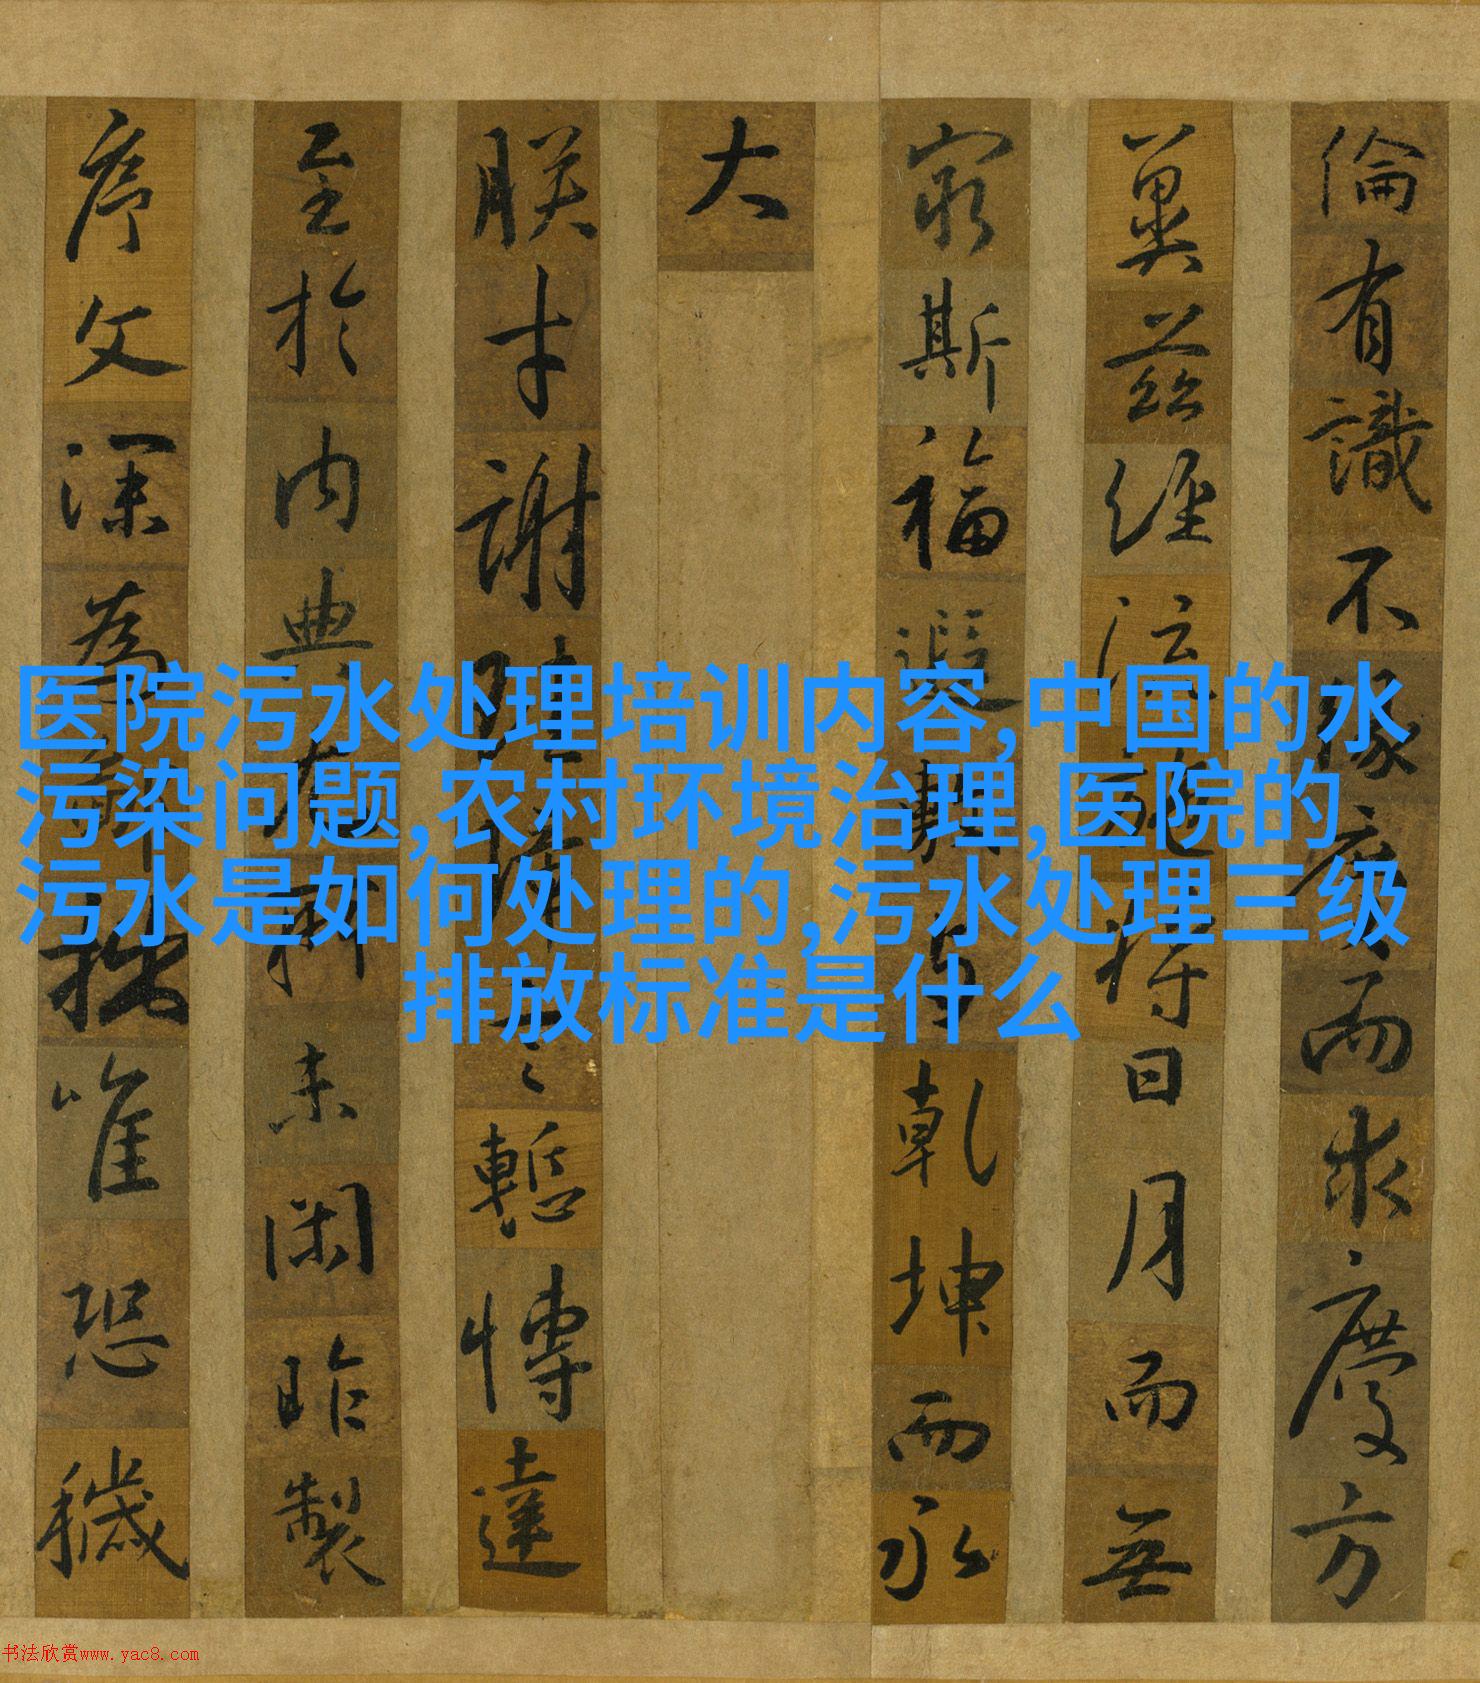 倫有識不緣慶而求慶方
冀茲經流施將日月而無
窮斯福遐敷與乾坤而永
大
朕才謝珪璋言慙博達
至於內典尤所未閑昨製
序文深為鄙拙唯恐穢
医院污水处理培训内容,中国的水
污染问题,农村环境治理,医院的
污水是如何处理的,污水处理三级
排放标准是什么
书法欣赏www.yac8.com